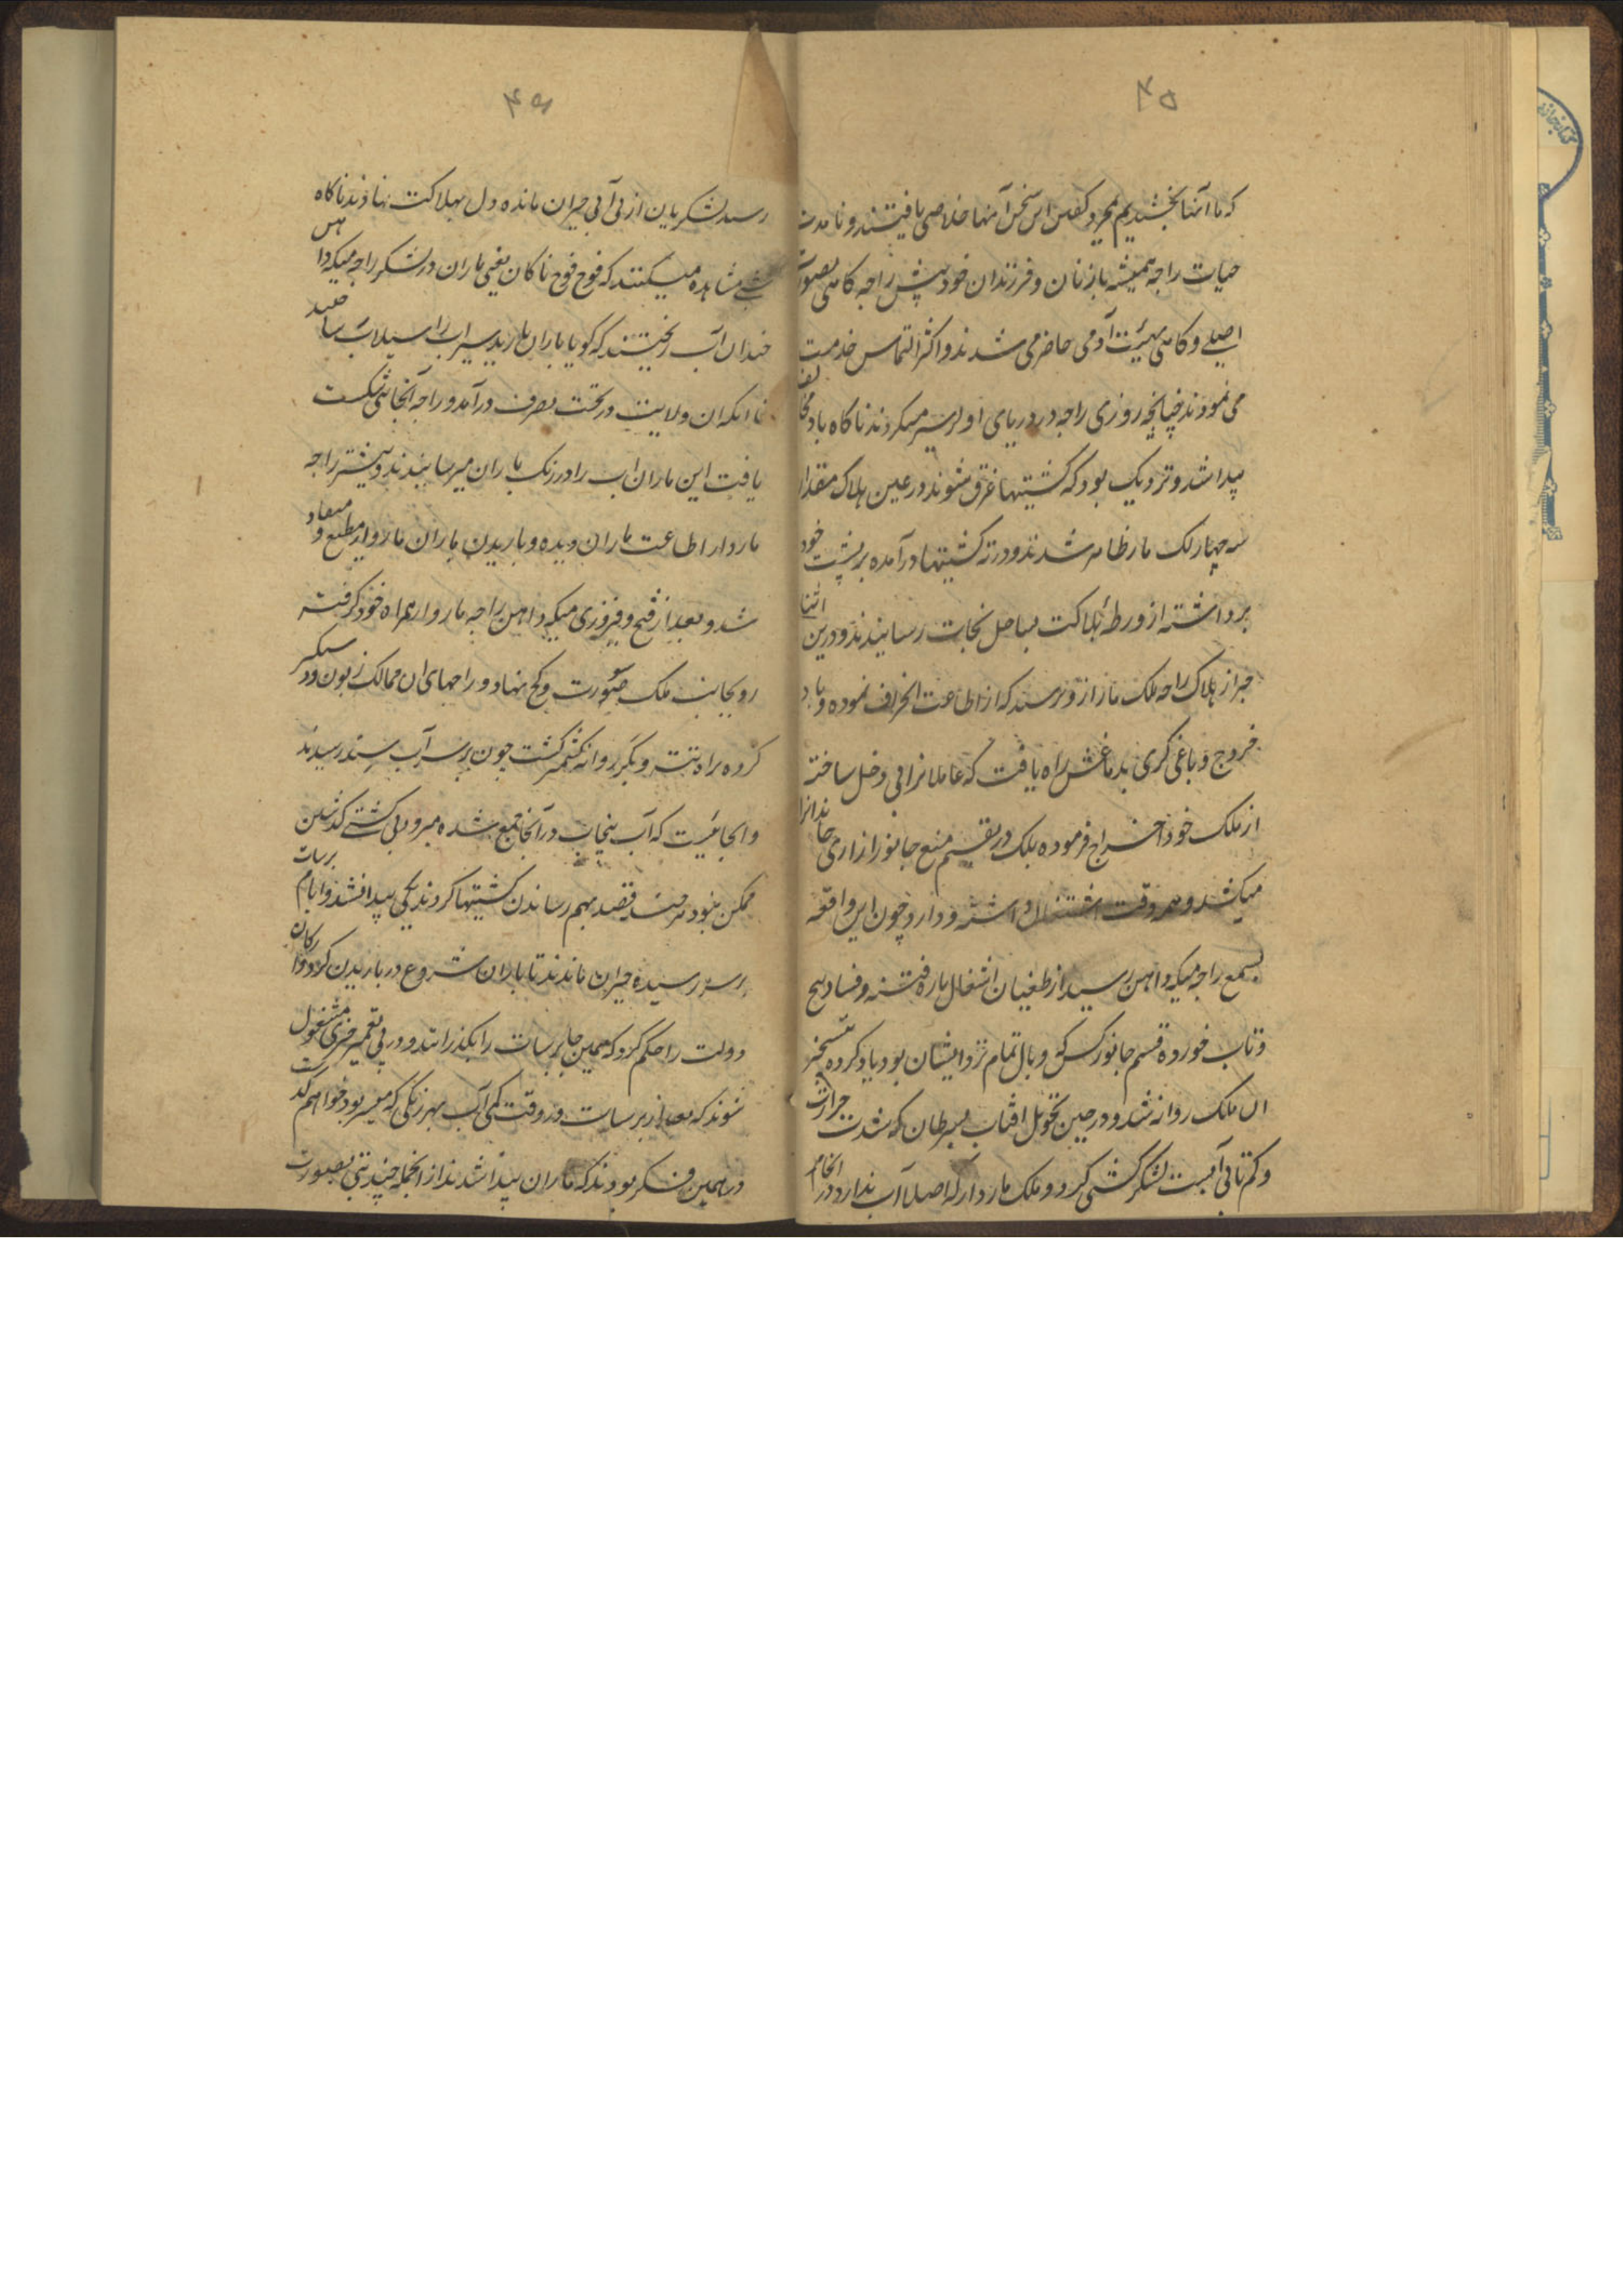 ۴۵
که ما آنها بخشیدیم بمجرد گفتن این سخن آنها خلاصی یافتند و تا مدت
حیات راجه همیشه با زنان و فرزندان خود پیش راجه گاهی بصورت
اصلی و گاهی بهیئت آدمی حاضر می شدند و اکثر التماس خدمت
می نمودند چنانچه روزی راجه در دریای اولر سیر میکردند ناگاه باد مخالف
پیدا شد و نزدیک بود که کشتیها غرق شوند در عین هلاک مقدار
سه چهار لک مار ظاهر شدند و در ته کشتیها درآمده بر پشت خود
برداشته از ورطهٔ هلاکت بساحل نجات رسانیدند و درین اثنا
خبر از هلاک راجه ملک رسید که از اطاعت انحراف نموده و باد
خروج و باغی گری بدماغش راه یافت که عاملانرا بی دخل ساخته
از ملک خود اخراج فرموده بلک در تقسیم منع جانور ازاری جاندارانرا
میکشد و همه وقت اشتغال داشته و دارد چون این واقعه
بسمع راجه میکواهن رسید از طغیان اشتغال باره فتنه و فساد پیچ
و تاب خورده قسم جانور کشی و بال تمام نزد ایشان بود یاد کرده بتسخیر
ان ملک روانه شد و در حین تحویل افتاب بسرطان که شدت حرارت
و کم تابی آبست لشکر کشی کرد و ملک ماروار که اصلا آب ندارد در انجا
۴۶
رسید لشکریان از بی آبی حیران مانده دل بهلاکت نهادند ناگاه
شبی مشاهده میکنند که فوج فوج ناکان یعنی ماران در لشکر راجه میکوا هن
چندان آب ریختند که گویا باران بارید سیراب را سیلاب ساختند
تا انکه ان ولایت در تحت تصرف درآمد و راجه آنجا شکست
یافت این ماران اب را در رنک باران میرسانیدند و بیشتر راجه
ماروار اطاعت ماران دیده و باریدن باران ماروار مطیع و منقاد
شد و بعد از فتح و فیروزی میکواهن راجه ماروار همراه خود گرفته
رو بجانب ملک سورت و کچ نهاد و راجهای ان ممالک زبون و دستگیر
کرده براه تته و بکر روانه کشمیر گشت چون بر سر آب سند رسیدند
و انجائیست که آب پنجاب در آنجا جمع شده میرود بی کشتی گذشتن
ممکن نبود هر چند قصد بهم رساندن کشتیها کردند یکی پیدا نشد و ایام برسات
بر سر رسیده حیران ماندند تا باران شروع در باریدن کرد و ارکان
دولت را حکم کرد که همین جا برسات را بگذرانند و در پی تعمیر خری مشغول
شوند که بعد از برسات در وقت کمی آب بهر رنگی که میسر بود خواهیم گذشت
در همین فکر بودند که ماران پیدا شدند از انجمله چند تنی بصورت